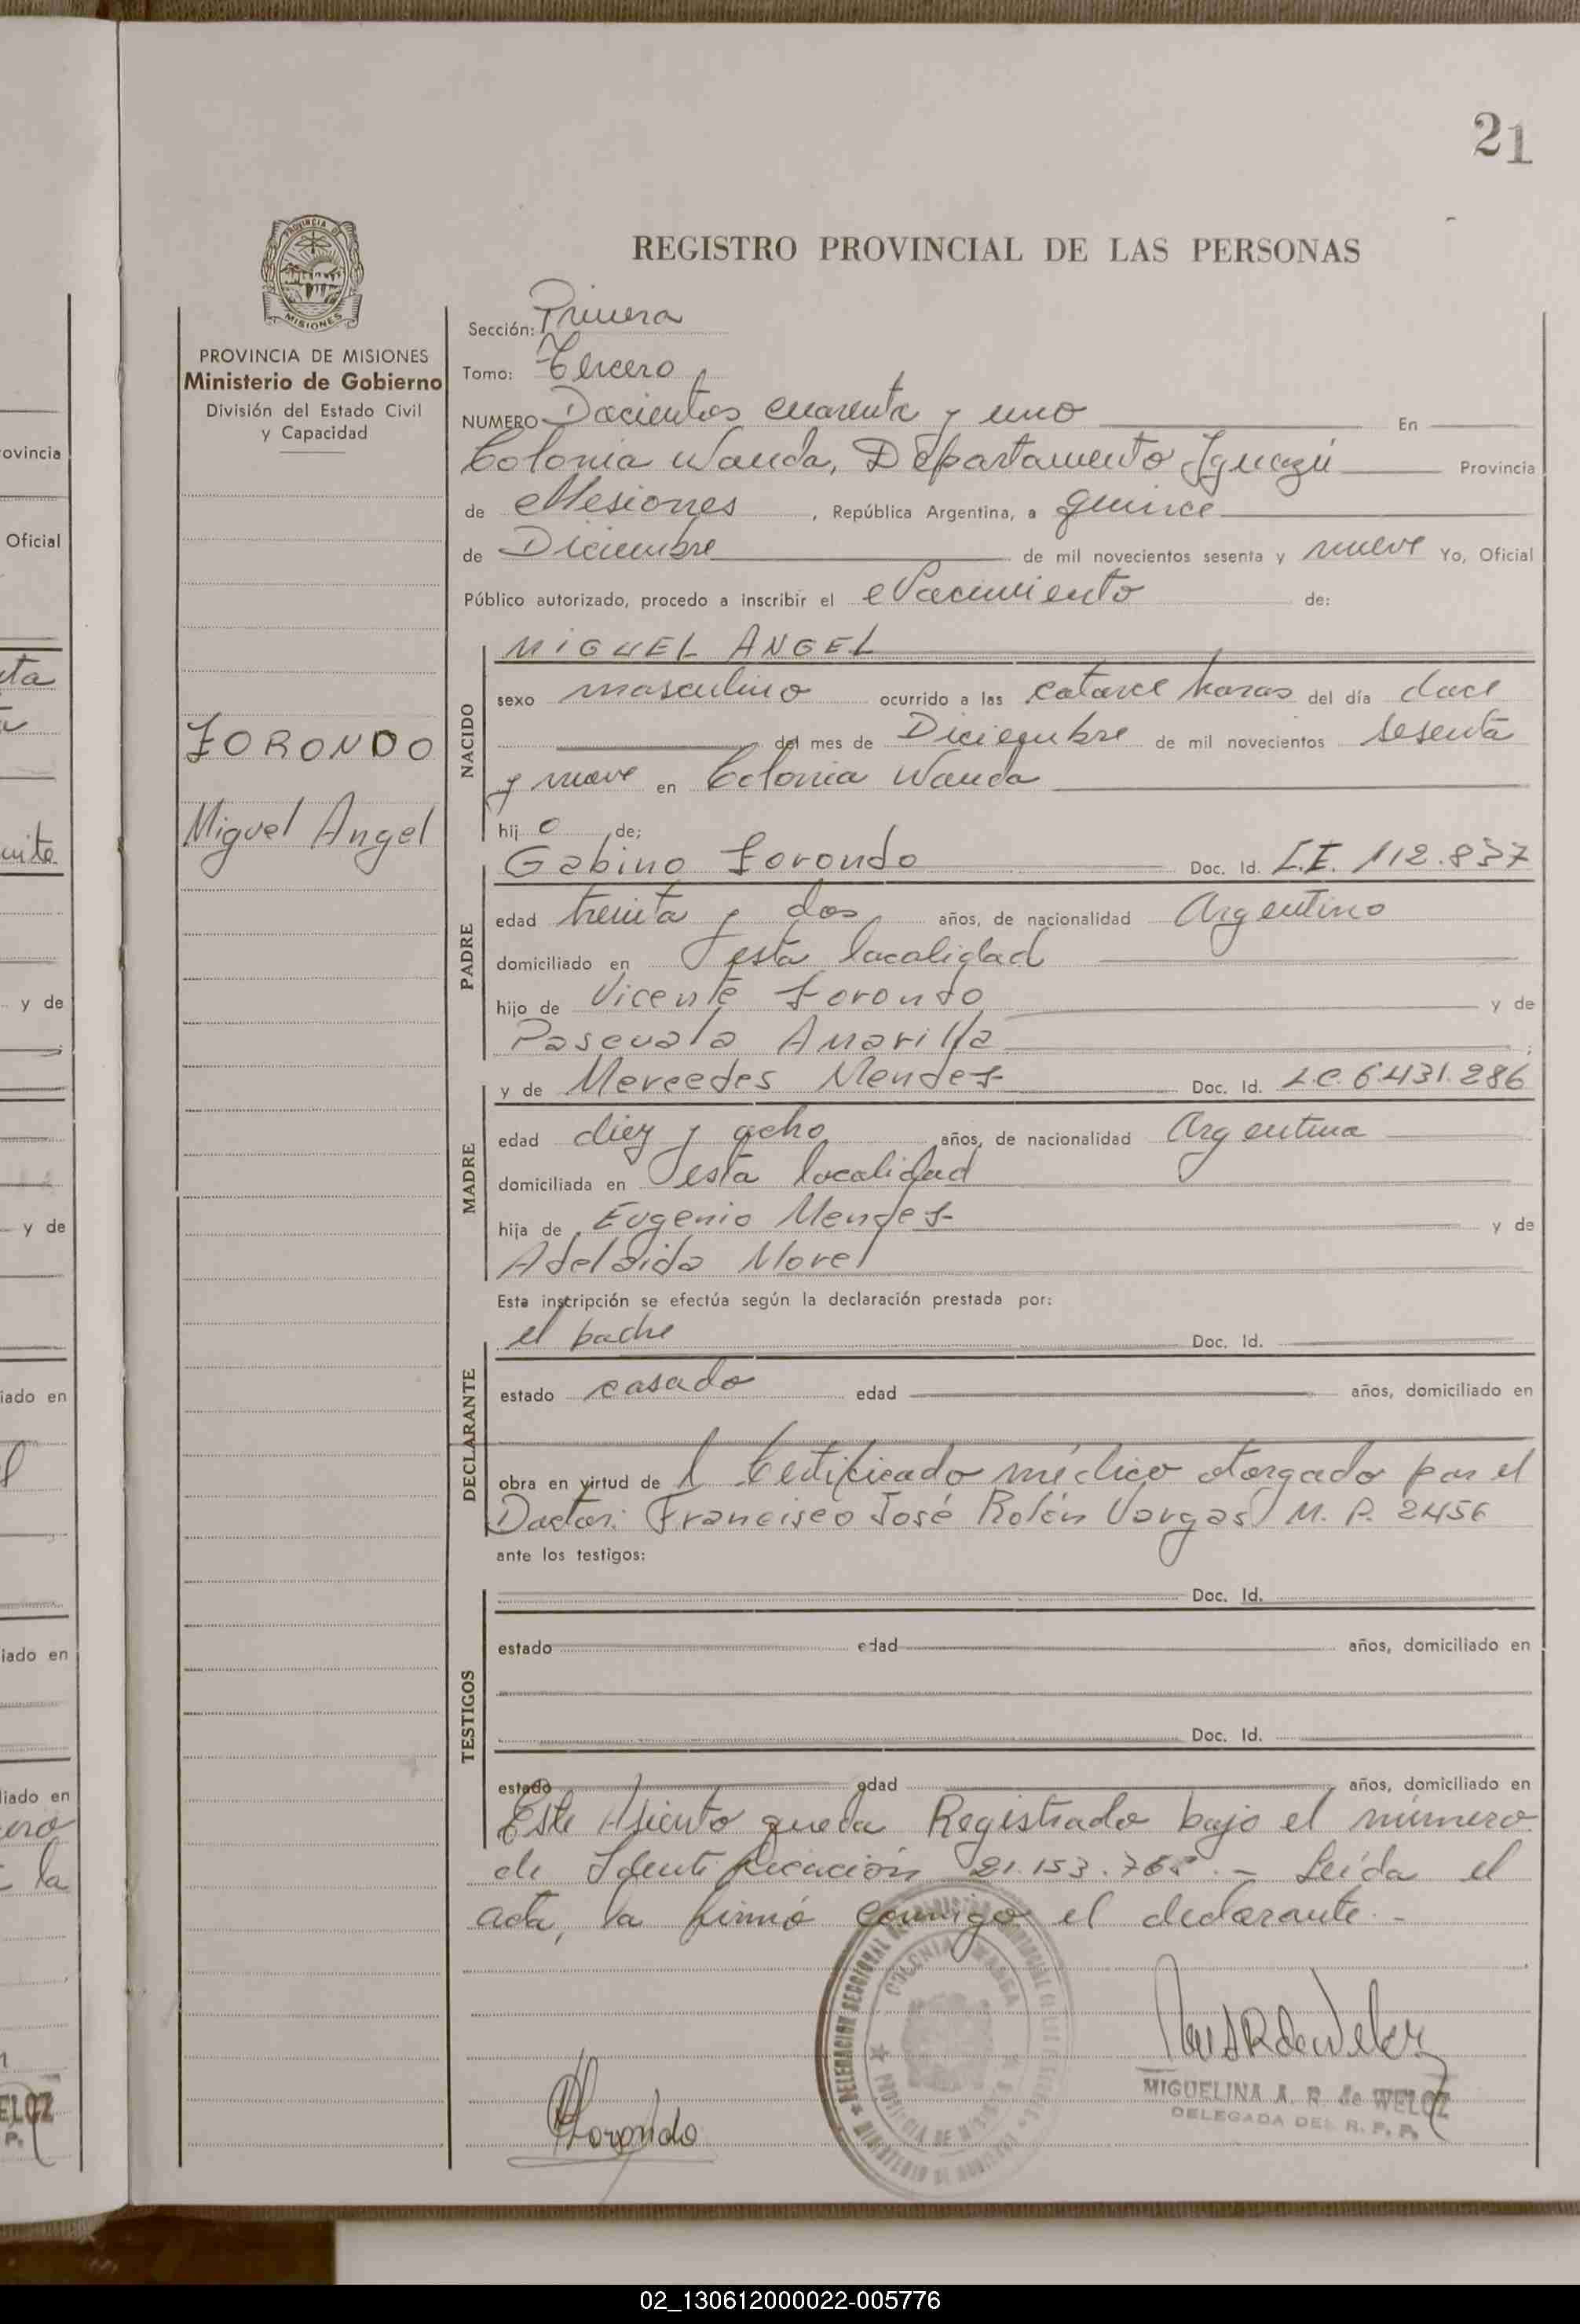 21
REGISTRO PROVINCIAL DE LAS PERSONAS
PROVINCIA DE
MISIONES
PROVINCIA DE MISIONES
Ministerio de Gobierno
División del Estado Civil
y Capacidad
ZORONDO
Miguel Angel
Sección: Primera
Tomo: Tercero
NUMERO Docientos cuarenta y uno En
Colonia Wanda, Departamento Iguazú Provincia
de Misiones, República Argentina, a quince
de Diciembre de mil novecientos sesenta y nueve Yo, Oficial
Público autorizado, procedo a inscribir el Nacimiento de:
NACIDO
MIGUEL ANGEL
sexo masculino ocurrido a las catorce horas del día doce
del mes de Diciembre de mil novecientos sesenta
y nueve en Colonia Wanda
hijo de;
PADRE
Gabino Zorondo Doc. Id. L.E. 112.837
edad treinta y dos años, de nacionalidad Argentino
domiciliado en esta localidad
hijo de Vicente Zorondo y de
Pascuala Amarilla;
MADRE
y de Mercedes Mendez Doc. Id. L.C. 6.431.286
edad diez y ocho años, de nacionalidad Argentina
domiciliada en esta localidad
hija de Eugenio Mendez y de
Adelaida Morel
Esta inscripción se efectúa según la declaración prestada por:
DECLARANTE
el padre Doc. Id.
estado casado edad años, domiciliado en
obra en virtud del Certificado médico otorgado por el
Doctor: Francisco José Rolón Vargas M. P. 2456
ante los testigos:
TESTIGOS
Doc. Id.
estado edad años, domiciliado en
Doc. Id.
estado edad años, domiciliado en
Este Asiento queda Registrado bajo el número
de Identificación 21.153.765.- Leída el
acta, la firmó conmigo el declarante.-
COLONIA WANDA
PROVINCIA DE MISIONES
DELEGACION SECCIONAL
MINISTERIO DE
Zorondo
MIGUELINA A. R. de WELOZ
DELEGADA DEL R. P. P.
ovincia
Oficial
y de
y de
iado en
iado en
iado en
la
ELOZ
P.
02_130612000022-005776